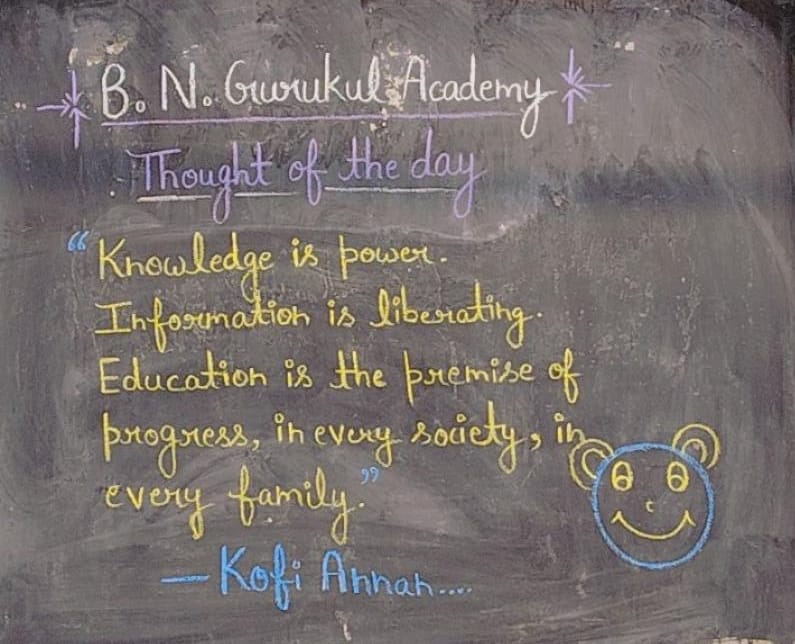 B. N. Gurukul Academy
Thought of the day
“Knowledge is power.
Information is liberating.
Education is the premise of
progress, in every society, in
every family.”
— Kofi Annan....